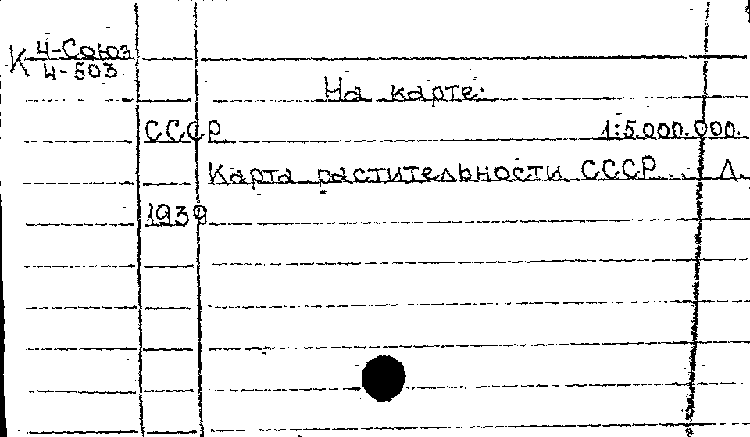 К 4-Союз
4-503
На карте:
СССР 1:5.000.000.
Карта растительности СССР... Л.
1939